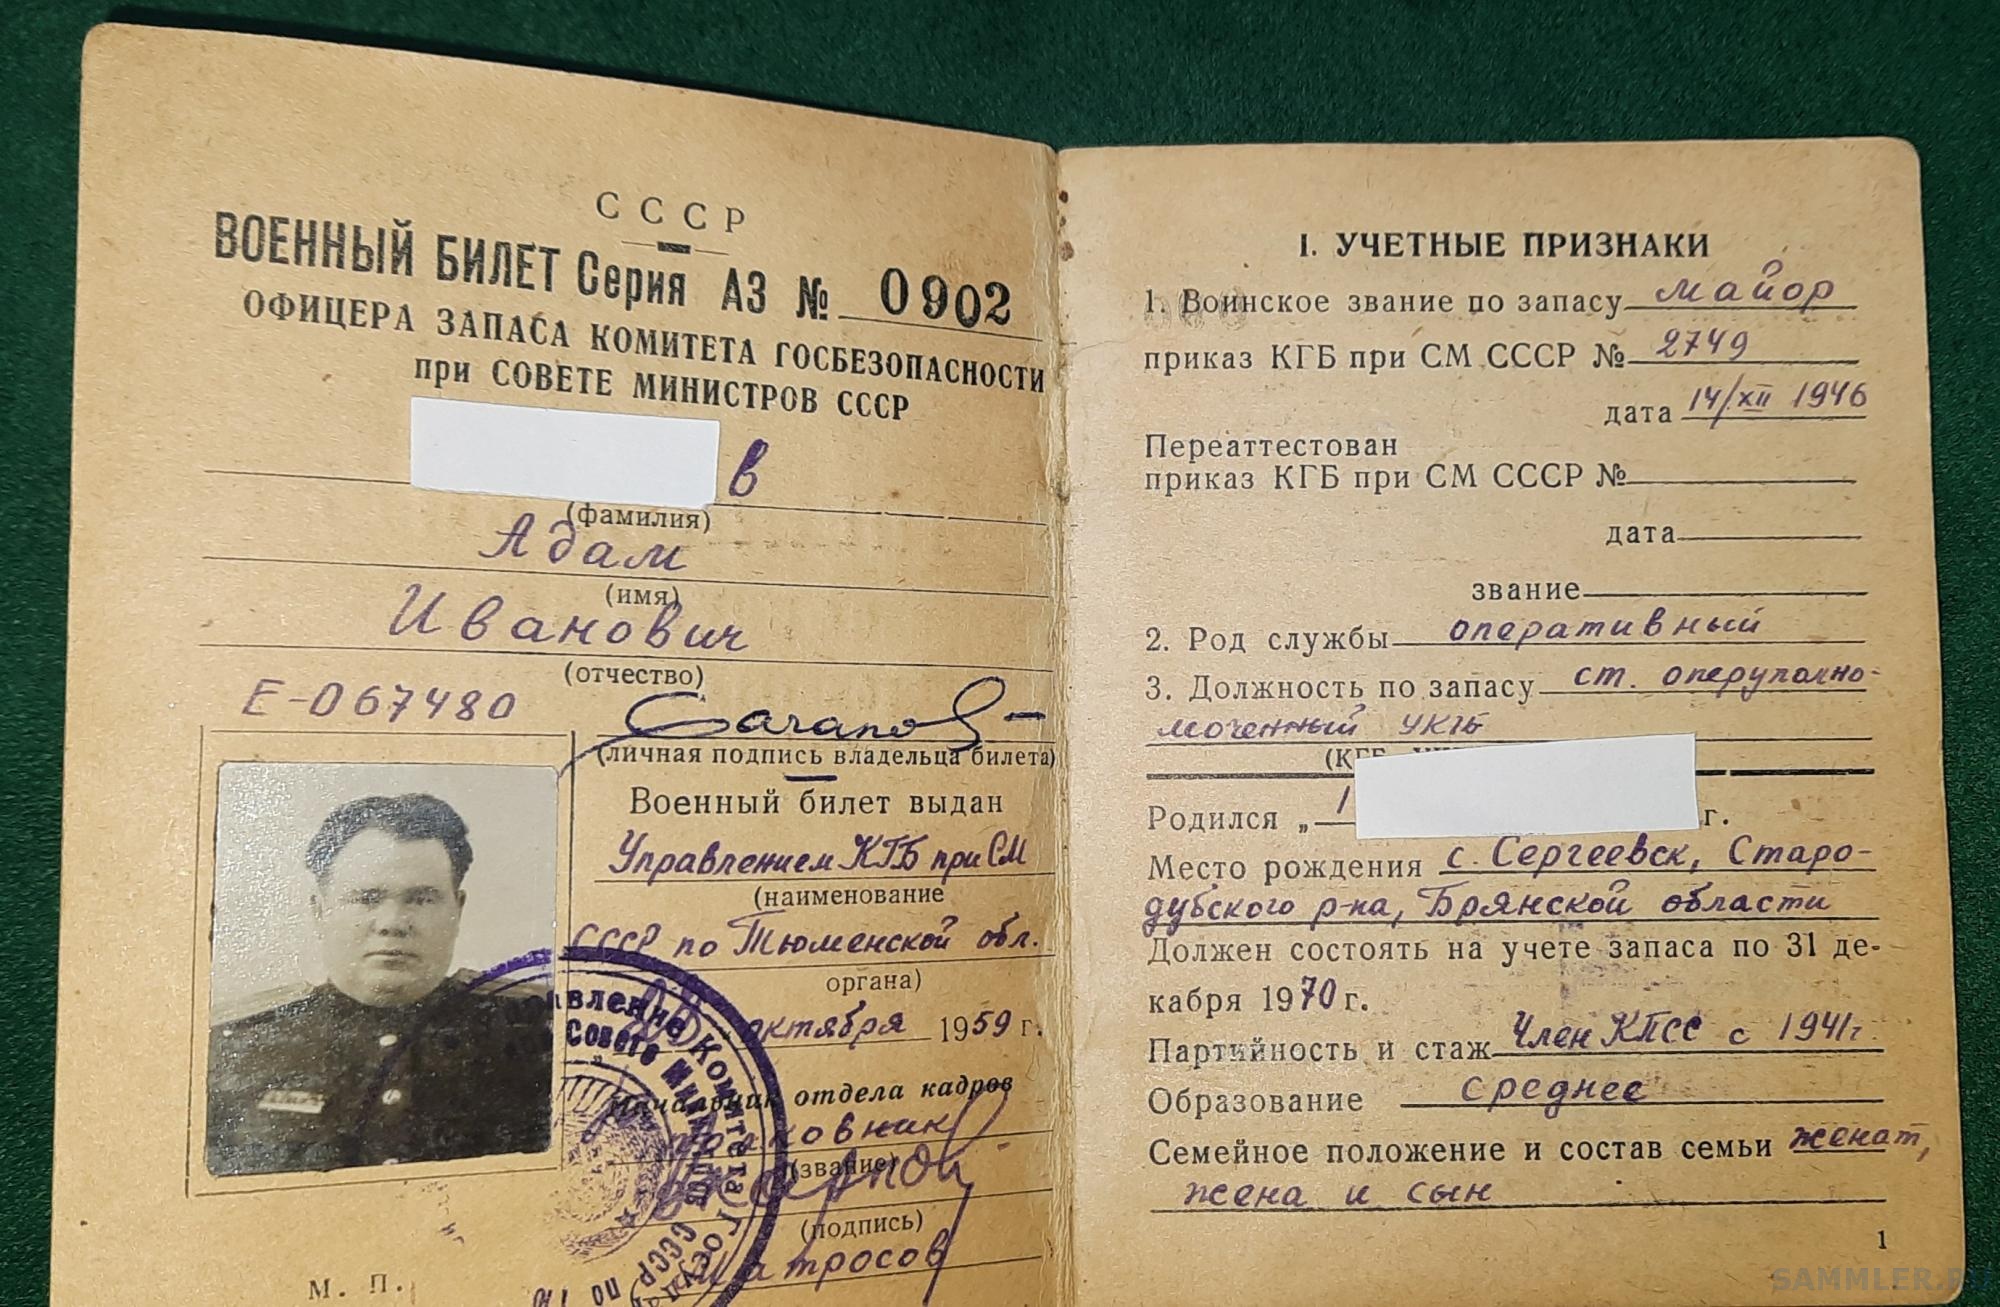 СССР
ВОЕННЫЙ БИЛЕТ Серия АЗ № 0902
ОФИЦЕРА ЗАПАСА КОМИТЕТА ГОСБЕЗОПАСНОСТИ
при СОВЕТЕ МИНИСТРОВ СССР
в
(фамилия)
Адам
(имя)
Иванович
(отчество)
Е-067480
(личная подпись владельца билета)
Военный билет выдан
Управлением КГБ при СМ
(наименование
СССР по Тюменской обл.
органа)
октября 1959 г.
Начальник отдела кадров
полковник
(звание)
(подпись)
Матросов
М. П.
I. УЧЕТНЫЕ ПРИЗНАКИ
1. Воинское звание по запасу майор
приказ КГБ при СМ СССР № 2749
дата 14/XII 1946
Переаттестован
приказ КГБ при СМ СССР №
дата
звание
2. Род службы оперативный
3. Должность по запасу ст. оперуполно-
моченный УКГБ
Родился „ 1 г.
Место рождения с. Сергеевск, Старо-
дубского р-на, Брянской области
Должен состоять на учете запаса по 31 де-
кабря 1970 г.
Партийность и стаж Член КПСС с 1941г.
Образование среднее
Семейное положение и состав семьи женат,
жена и сын
1
SAMMLER.RU